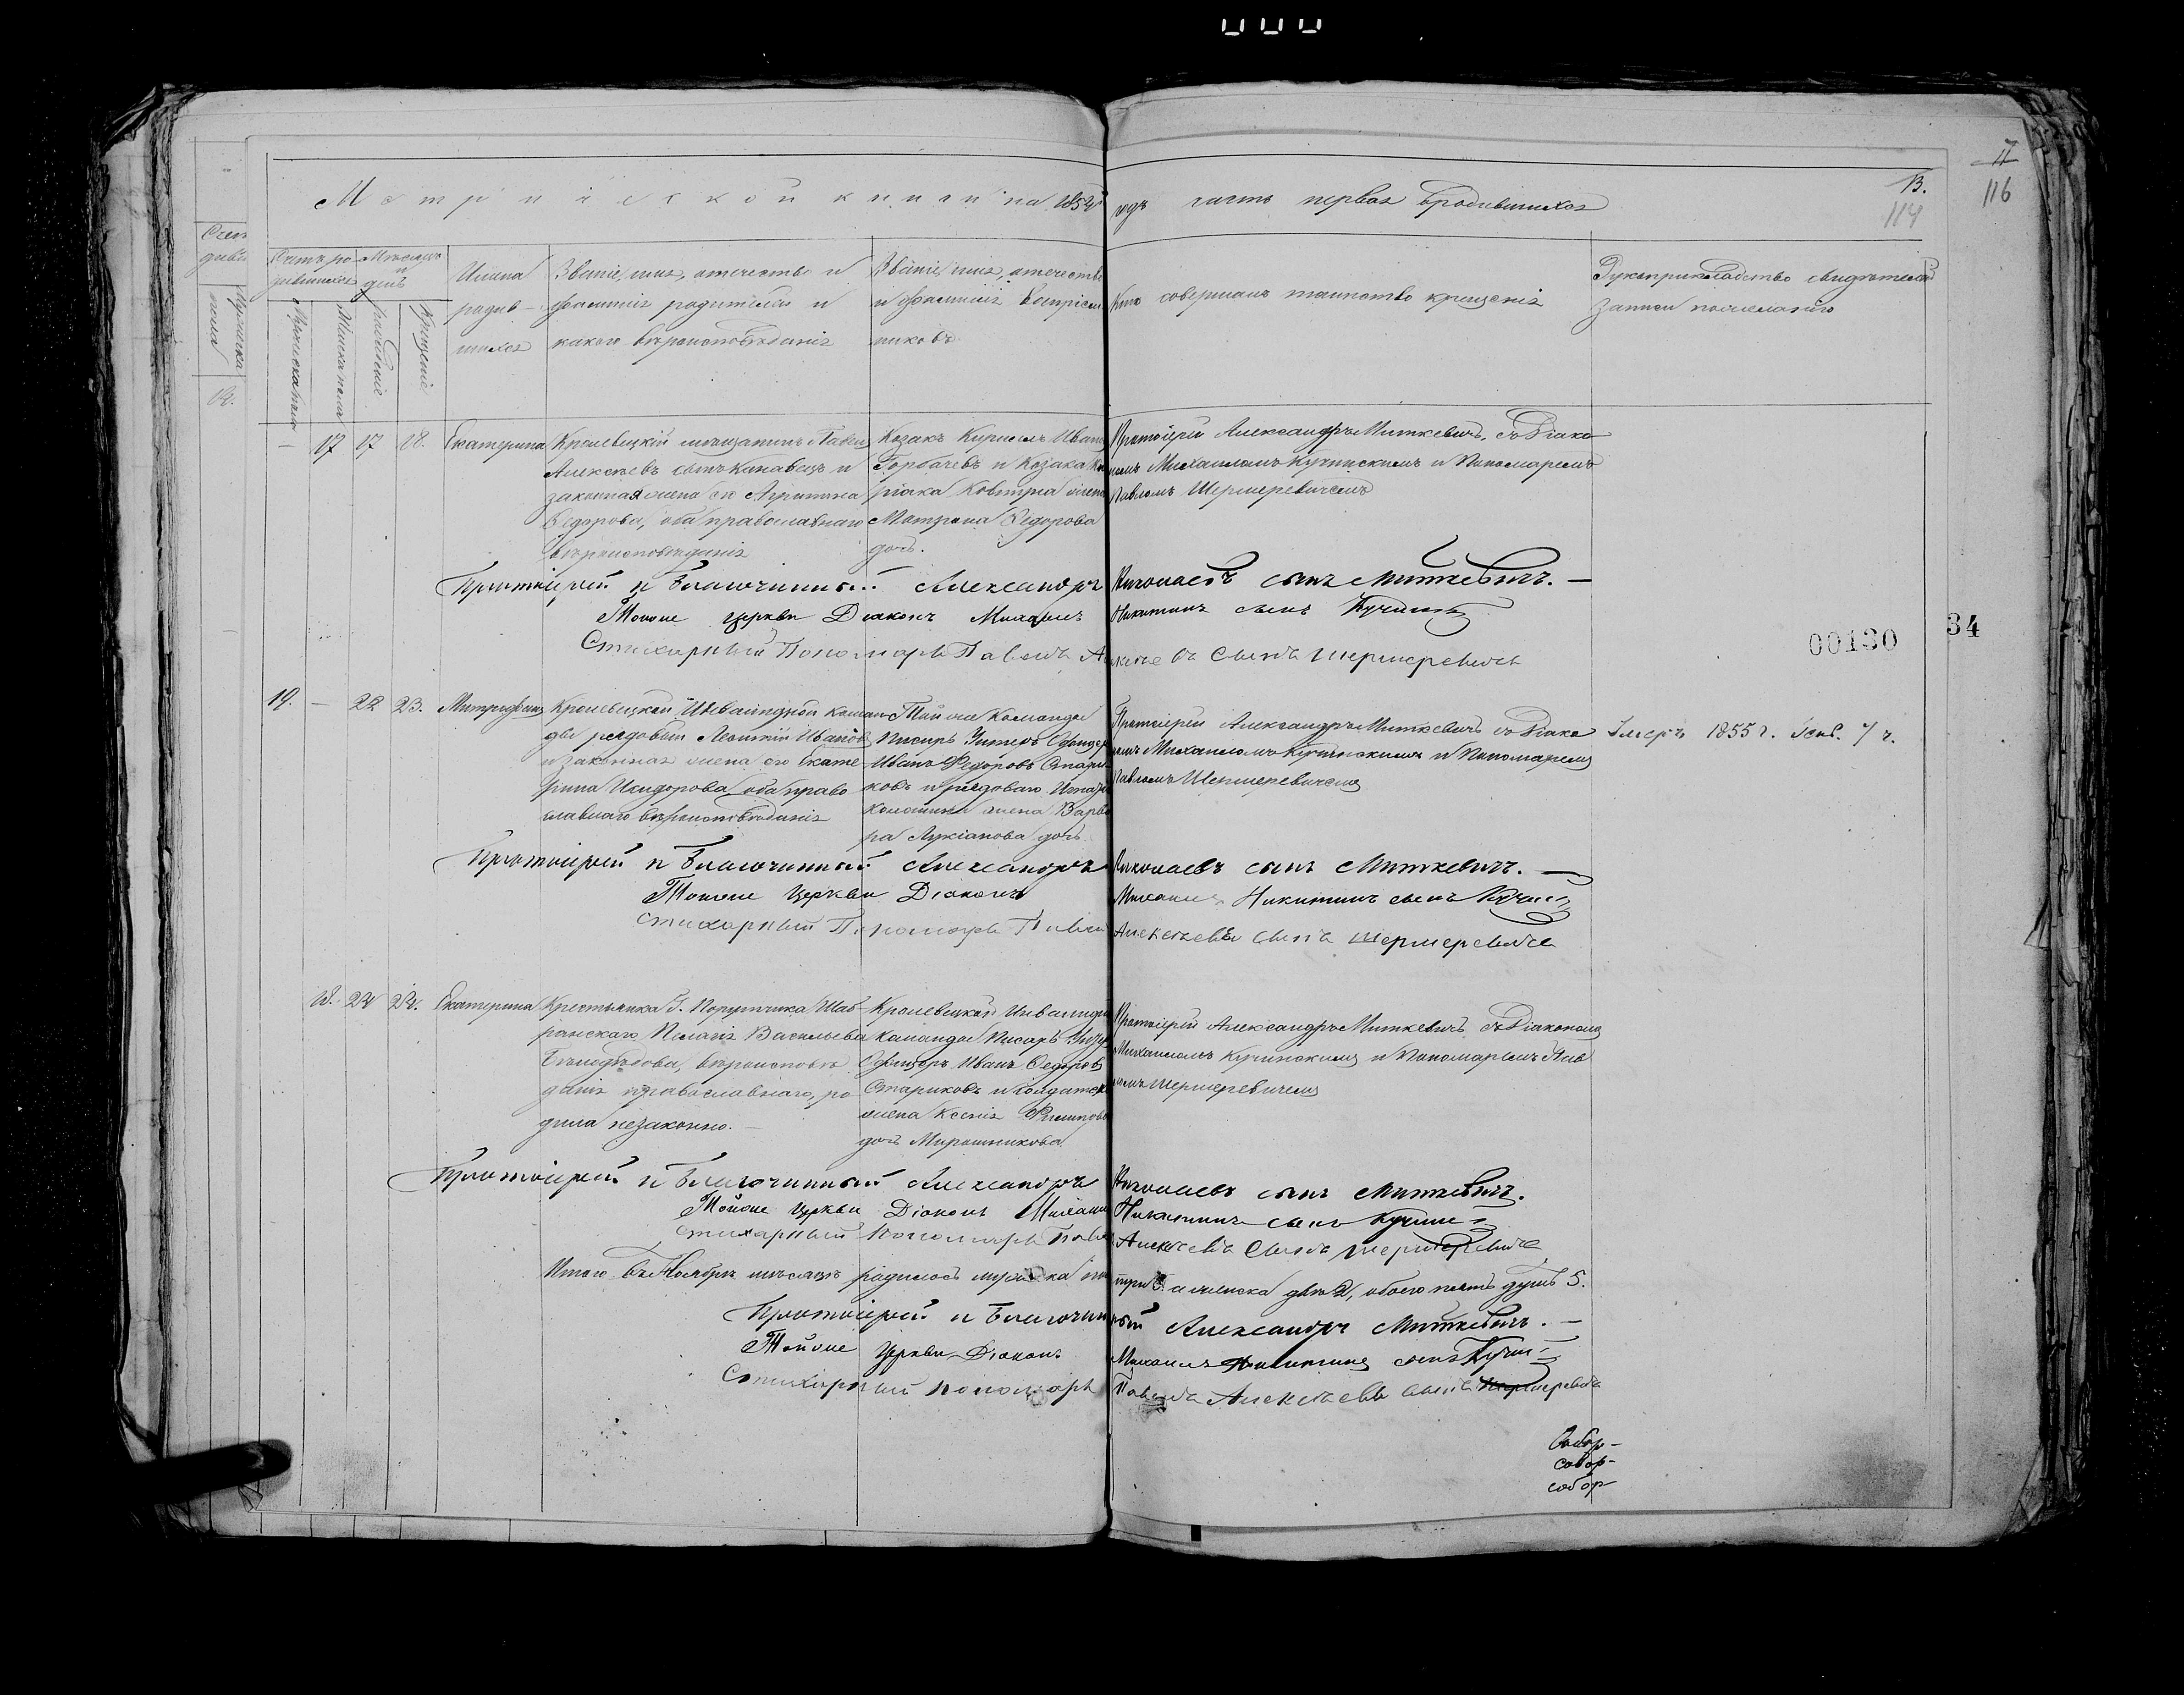 Метрической книги на 1854 годъ часть первая о родившихся
13.
114
116
34
00130
Счетъ родившихся
Мѣсяцъ и день
Имена родившихся
Званіе, имя, отечество и фамилія родителей и какого вѣроисповѣданія
Званіе, имя, отечество и фамилія воспріемниковъ
Кто совершалъ таинство крещенія
Рукоприкладство свидѣтелей записи по желанію
Мужеска пола
Женска пола
рожденіе
Крещеніе
— 17 17 18. Екатерина
Кролевецкій мѣщанинъ Павелъ
Алексѣевъ сынъ и
законная жена его
Ѳедорова, оба православнаго
вѣроисповѣданія
Козакъ Кирилъ Иванъ
Горбачевъ и Козака
Ковтуна жена
Матрона Ѳедорова
дочь.
Протоіерей Александръ Миткевичъ, съ Діако
номъ Михаиломъ Кучинскимъ и Пономаремъ
Павломъ Шермеревичемъ
Протоіерей и Благочинный Александръ Николаевъ сынъ Миткевичъ. —
Тойже церкви Діаконъ Михаилъ Никитинъ сынъ
Стихарный Пономарь Павелъ Алексѣевъ сынъ Шермеревичъ
19. — 22 23. Митрофанъ
Кролевецкой Инвалидной коман
ды рядовый Леонтій Ивановъ
и законная жена его Екате
рина Исидорова, оба право
славнаго вѣроисповѣданія
Тойже Команды
Писарь Унтеръ Офицеръ
Иванъ Федоровъ Стари
ковъ и рядоваго
жена Варва
ра Лукіанова дочь.
Протоіерей Александръ Миткевичъ съ Діако
номъ Михаиломъ Кучинскимъ и Пономаремъ
Павломъ Шермеревичемъ
Умеръ 1855 г. Генв. 7 ч.
Протоіерей и Благочинный Александръ Николаевъ сынъ Миткевичъ. —
Тойже Церкви Діаконъ Михаилъ Никитинъ сынъ
Стихарный Пономарь Павелъ Алексѣевъ сынъ Шермеревичъ
18. 24 24. Екатерина
Крестьянка Г. Порутчика Шаб
ранскаго Пелагія Васильева
вѣроисповѣ
данія православнаго, ро
дила незаконно. —
Кролевецкой Инвалидной
Команды Писарь Унтеръ
Офицеръ Иванъ Ѳедоровъ
Стариковъ и солдатска
жена Ксенія Филипова
дочь Мирошникова.
Протоіерей Александръ Миткевичъ, съ Діакономъ
Михаиломъ Кучинскимъ и Пономаремъ Пав
ломъ Шермеревичемъ
Протоіерей и Благочинный Александръ Николаевъ сынъ Миткевичъ.
Тойже Церкви Діаконъ Михаилъ Никитинъ сынъ
Стихарный Пономарь Павелъ Алексѣевъ Сынъ Шермеревичъ
Итого въ Ноябрѣ мѣсяцѣ родилось мужеска три 3. а женска двѣ 2, обоего пять душъ 5.
Протоіерей и Благочинный Александръ Миткевичъ. —
Тойже Церкви Діаконъ Михаилъ Никитинъ сынъ
Стихарный Пономарь Павелъ Алексѣевъ сынъ Шермеревичъ
Собор-
собор-
собор